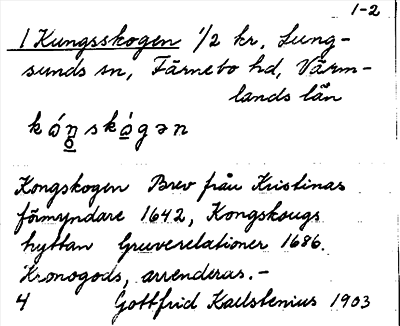 1-2
1 Kungsskogen 1/2 kr, Lung-
sunds sn, Färnebo hd, Värm-
lands län
kóŋskógən
Kongskogen Brev från Kristinas
förmyndare 1642, Kongskougs
hyttan Gruverelationer 1686.
Kronogods, arrenderas.-
4 Gottfrid Kallstenius 1903